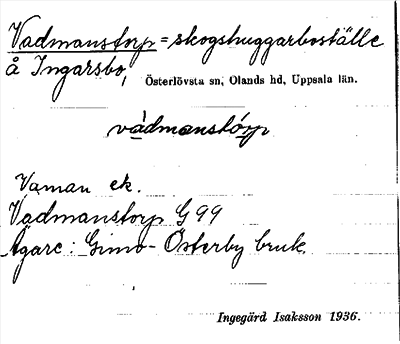 Vadmanstorp = skogshuggarboställe
å Ingarsbo, Österlövsta sn, Olands hd, Uppsala län.
vàdmanstórp
Vaman ek.
Vadmanstorp G 99
Ägare: Gimo-Österby bruk.
Ingegärd Isaksson 1936.